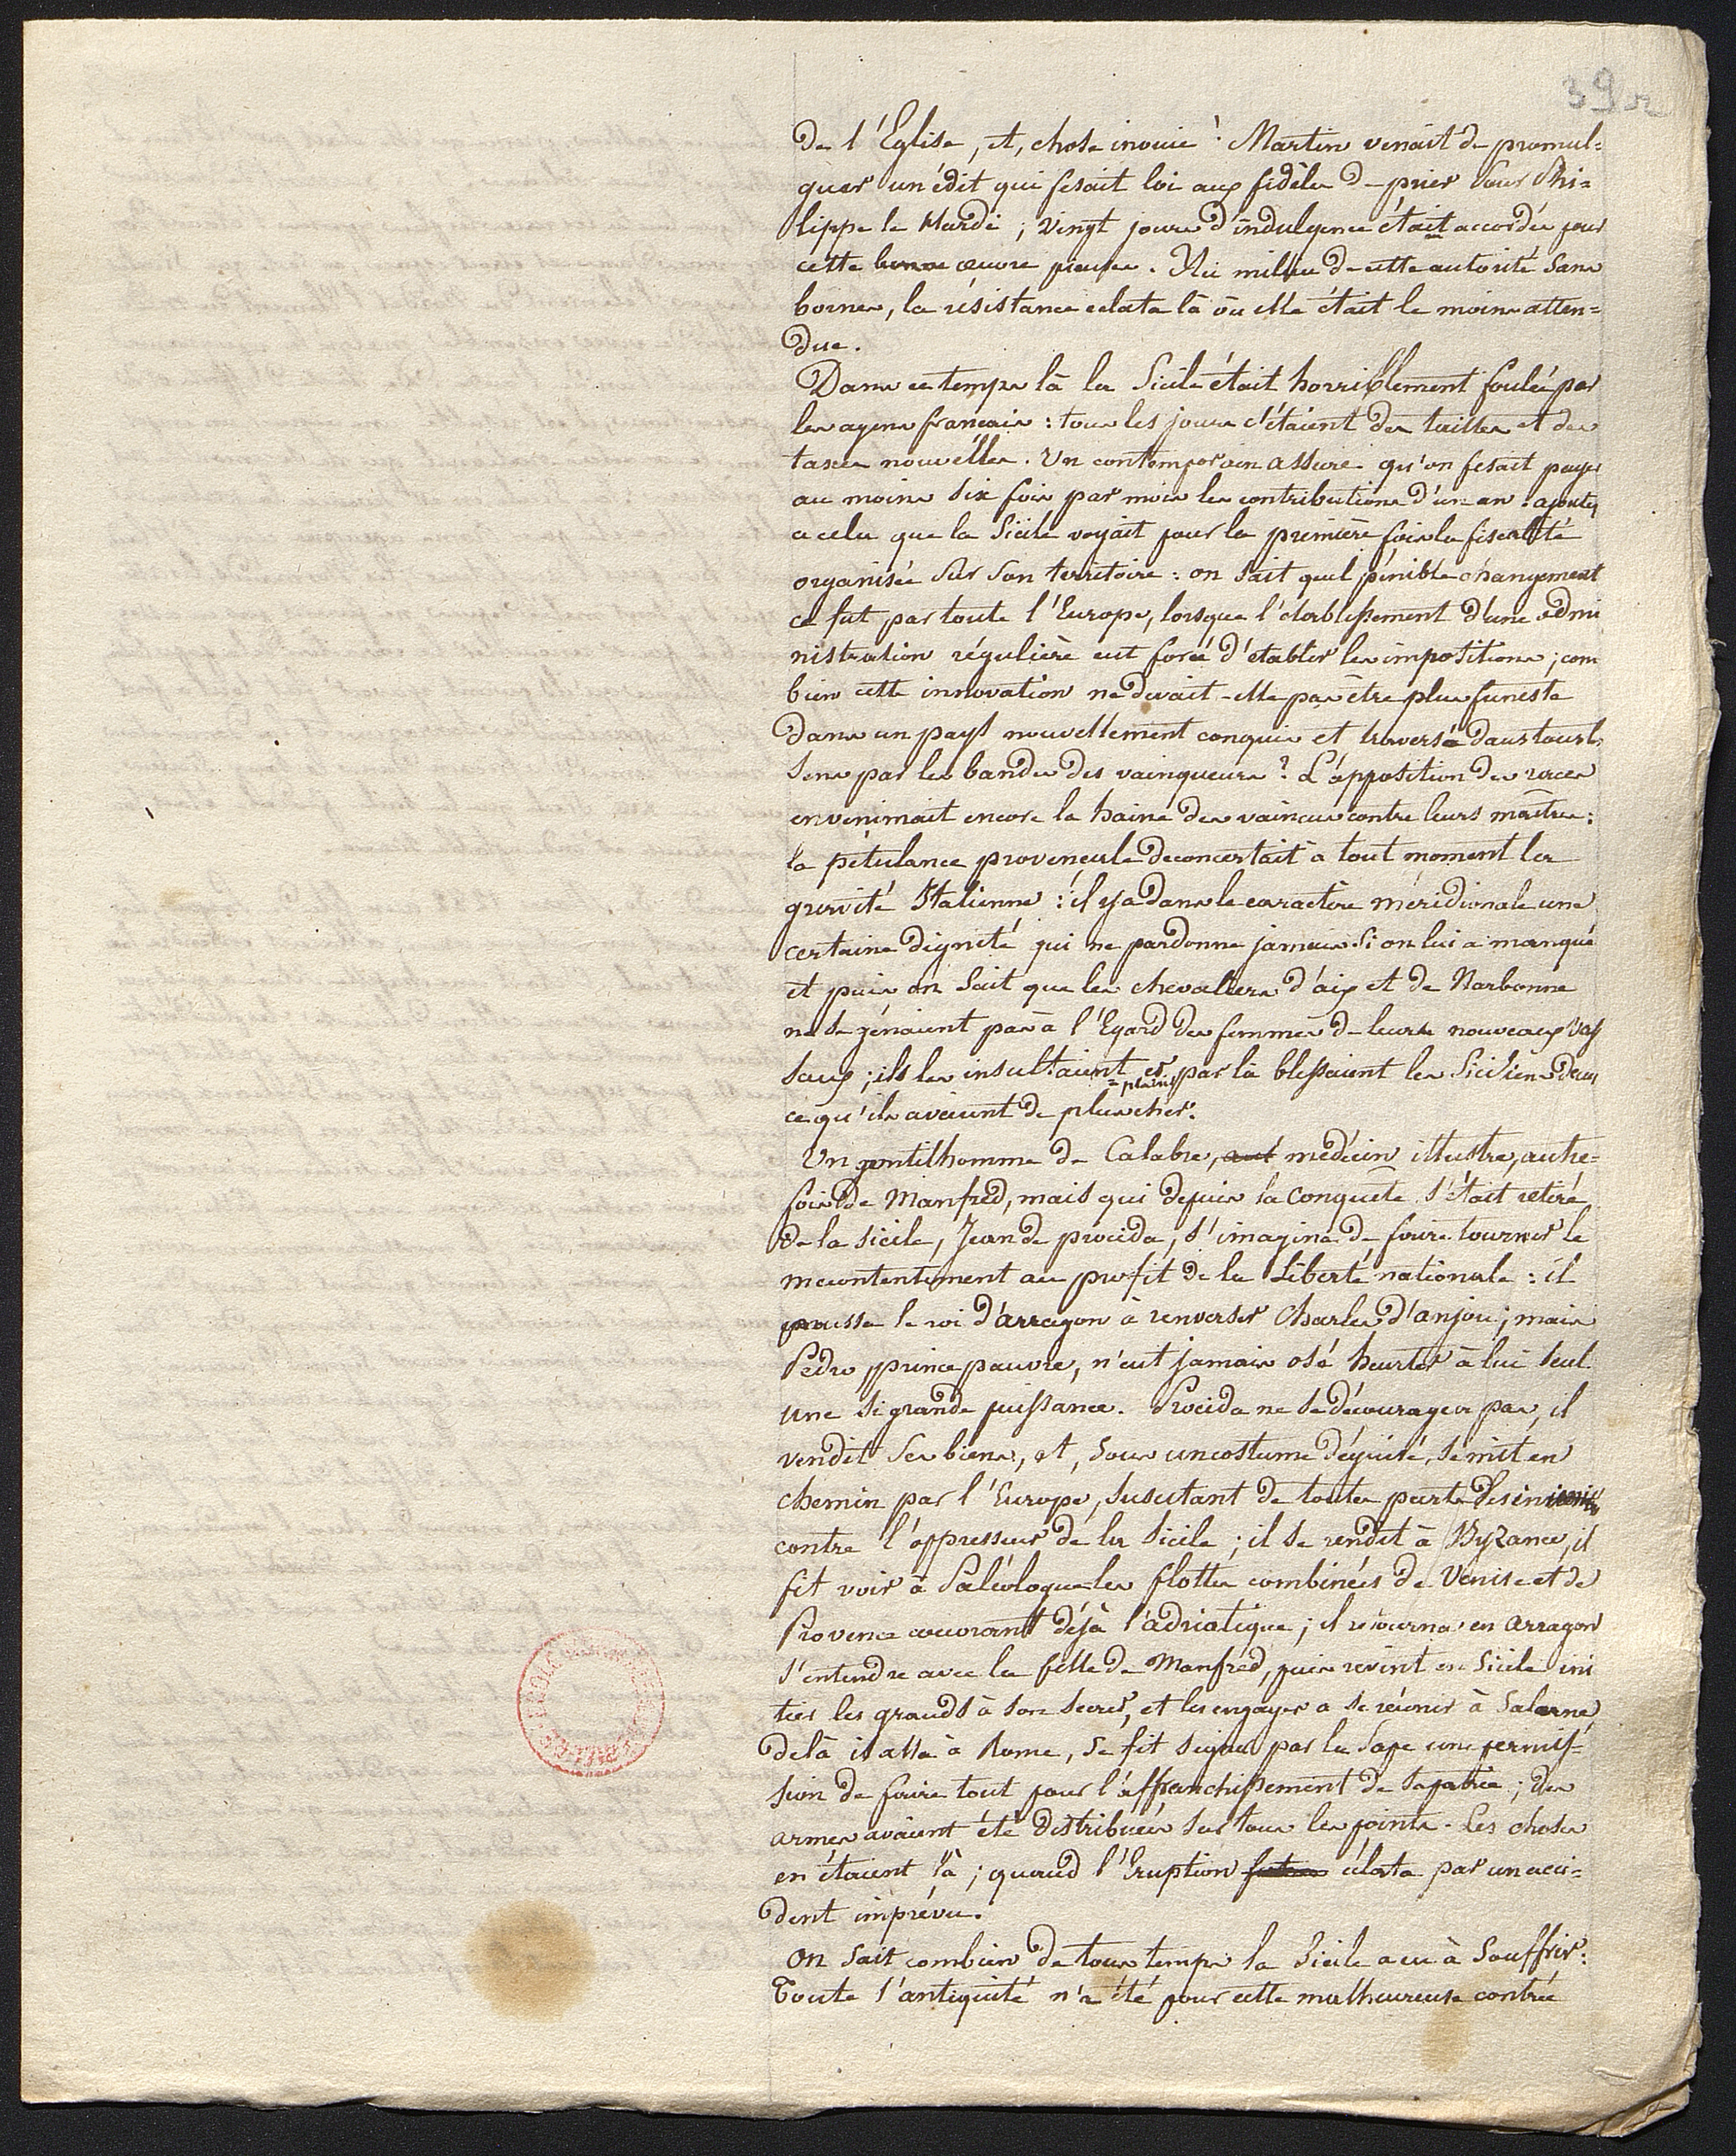 39 r
de l'Eglise, et, chose inouie ! Martin venait de promul=
guer un édit qui fesait loi aux fidèles de prier pour Phi=
lippe le Hardi ; vingt jours d'indulgence était accordés pour
cette bonne œuvre pieuse. Au milieu de cette autorité sans
bornes, la résistance eclata là où elle était le moins atten=
due.
Dans ce temps là la Sicile était horriblement foulée par
les agens francais : tous les jours c'étaient des tailles et des
taxes nouvelles. Un contemporain assure qu'on fesait payer
au moins six fois par mois les contributions d'un an : ajoutez
a cela que la Sicile voyait pour la première fois la fiscalité
organisée sur son territoire : on sait quel pénible changement
ce fut par toute l'Europe, lorsque l'établissement d'une admi
nistration régulière eut forcé d'établir les impositions ; com
bien cette innovation ne devait-elle pas être plus funeste
dans un pays nouvellement conquis et traversé dans tous les
sens par les bandes des vainqueurs ? L'opposition des races
envenimait encore la haine des vaincus contre leurs maîtres :
la pétulance provençale déconcertait à tout moment la
gravité Italienne : il y a dans le caractère méridionale une
certaine dignité qui ne pardonne jamais si on lui a manqué
et puis on sait que les chevaliers d'aix et de Narbonne
ne se gênaient pas à l'Egard des femmes de leurs nouveaux vas
saux ; ils les insultaient et par là blessaient les Siciliens dans
ce qu'ils avaient de plus cher.
Un gentilhomme de Calabre, médecin illustre, autre=
fois de Manfred, mais qui depuis la conquête s'était retiré
de la sicile, Jean de procida, s'imagina de faire tourner le
mecontentement au profit de la Liberté nationale : il
pousse le roi d'arragon à renverser Charles d'anjou ; mais
Pédro prince pauvre, n'eut jamais osé heurter à lui seul
une si grande puissance. Procida ne se découragea pas, il
vendit ses biens, et, sous un costume déguisé, se mit en
chemin par l'Europe, suscitant de toutes parts des
contre l'oppresseur de la Sicile ; il se rendit à Byzance, il
fit voir à Paléologue les flottes combinées de Venise et de
Provence couvrant déjà l'adriatique ; il retourna en arragon
s'entendre avec la fille de Manfred, puis revint en Sicile ini
tier les grands à son secret, et les engager a se réunir à Salerne
delà il alla à Rome, se fit signer par le Pape une permis=
sion de faire tout pour l'affranchissement de sa patrie ; des
armes avaient été distribuées sur tous les points. Les choses
en étaient là ; quand l'Eruption éclata par un acci=
dent imprévu.
On sait combien de tous temps la Sicile a eu à Souffrir :
Toute l'antiquité n'a été pour cette malheureuse contrée